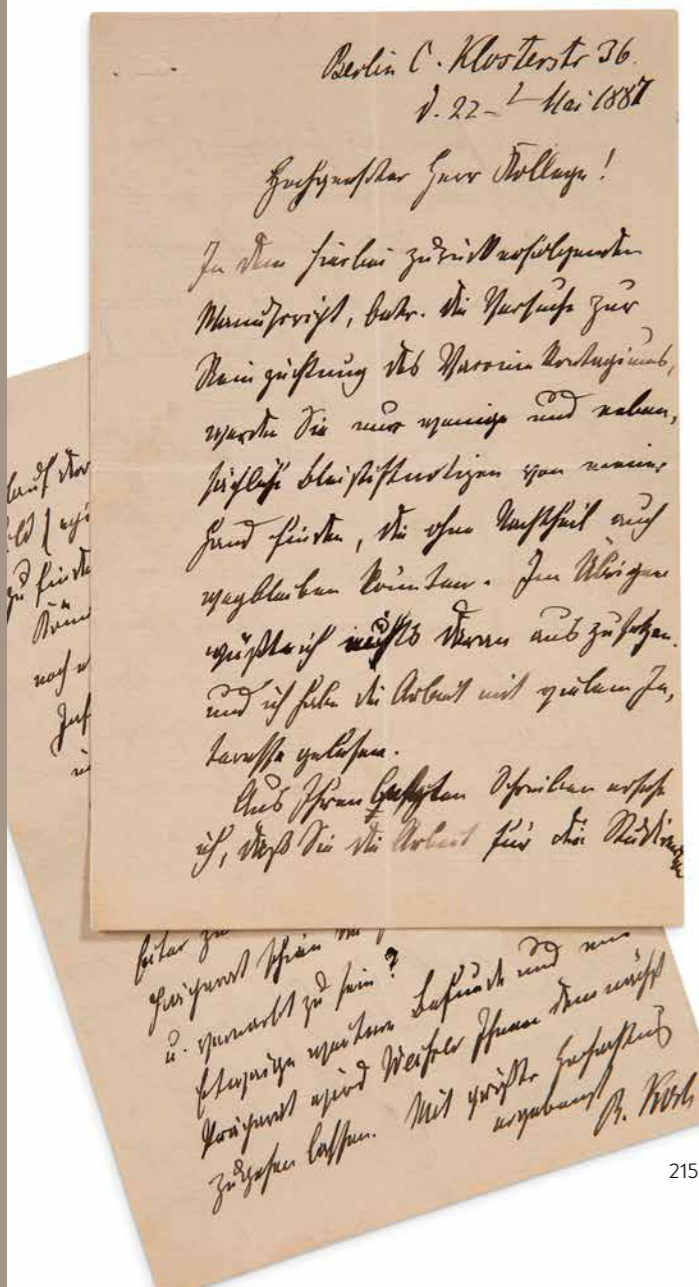 Berlin C. Klosterstr 36.
d. 22 Mai 1887
Hochgeehrter Herr Kollege!
In dem hierbei zurückerfolgenden
Manuscript, betr. die Versuche zur
Reinzüchtung des Vaccine Kontagiums,
werden Sie nur wenige und neben,
sächliche Bleistiftnotizen von meiner
Hand finden, die ohne Nachtheil auch
wegbleiben könnten. Im Übrigen
wüßte ich nichts daran auszusetzen.
und ich habe die Arbeit mit vielem In,
teresse gelesen.
Aus Ihrem geehrten Schreiben ersehe
ich, daß Sie die Arbeit für die
lauf der
zu finde
noch
Präparat schien
u. vernarbt zu sein?
Etwaige weitere Befunde und
Präparat wird Ihnen demnächst
zugehen lassen. Mit größter Hochachtung
ergebenst
R. Koch
215